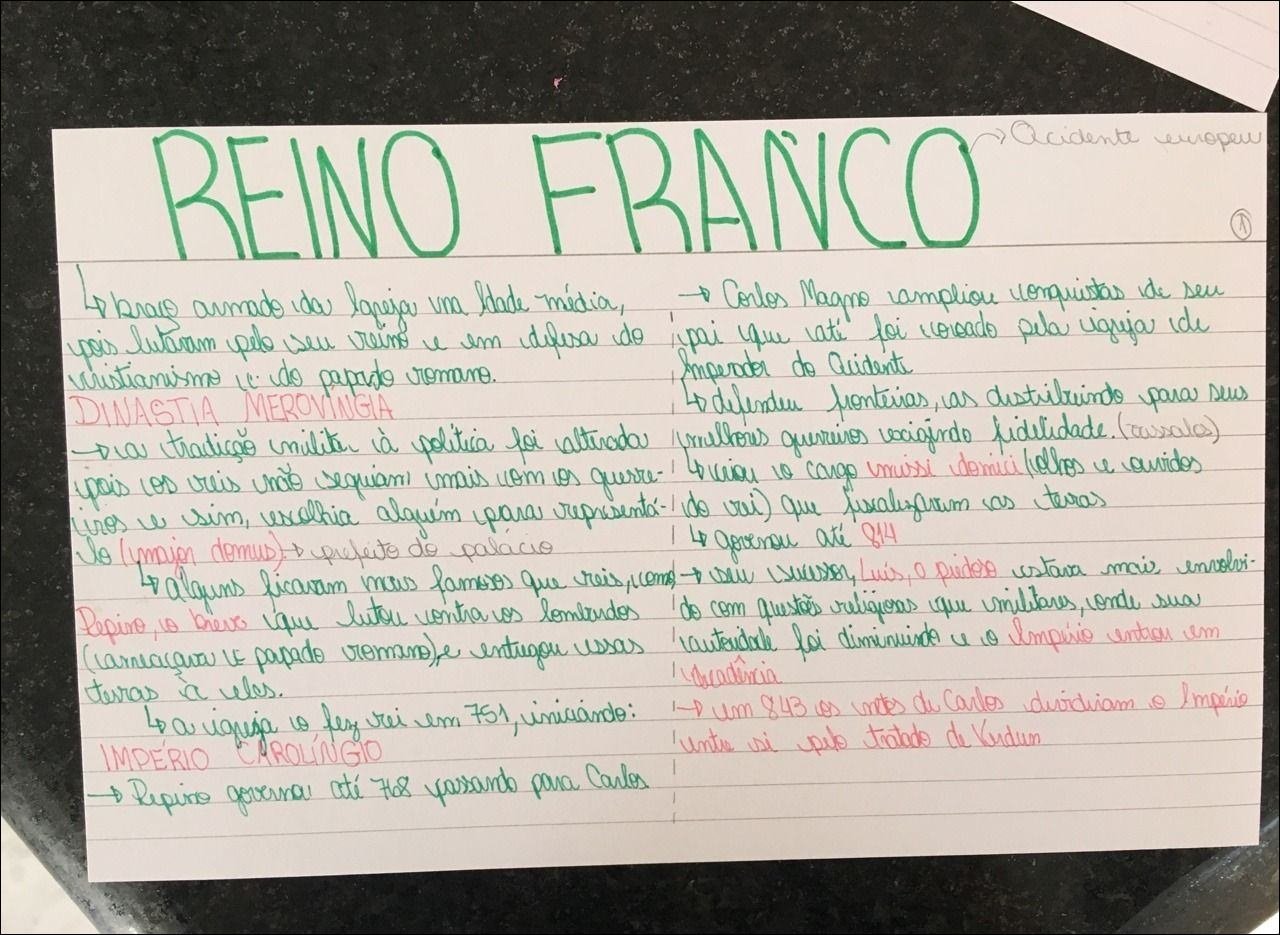 REINO FRANCO → Ocidente europeu
①
↳ braço armado da Igreja na Idade média,
pois lutaram pelo seu reino e em defesa do
cristianismo e do papado romano.
DINASTIA MEROVINGIA
→ a tradição militar à política foi alterada
pois os reis não seguiam mais com os guerre-
iros e sim, escolhia alguém para representá-
lo (major domus) → prefeito do palácio
↳ alguns ficaram mais famosos que reis, como
Pepino, o breve que lutou contra os lombardos
(ameaçava o papado romano), e entregou essas
terras à eles.
↳ a igreja o fez rei em 751, iniciando:
IMPÉRIO CAROLÍNGIO
→ Pepino governa até 768 passando para Carlos
→ Carlos Magno ampliou conquistas de seu
pai que até foi coroado pela igreja de
Imperador do Ocidente
↳ defendeu fronteiras, as distribuindo para seus
melhores guerreiros exigindo fidelidade. (vassalos)
↳ criou o cargo missi domici (olhos e ouvidos
do rei) que fiscalizaram as terras
↳ governou até 814
→ seu sucessor, Luís, o piedoso estava mais envolvi-
do com questões religiosas que militares, onde sua
autoridade foi diminuindo e o Império entrou em
decadência
→ em 843 os netos de Carlos dividiram o Império
entre si pelo tratado de Verdun